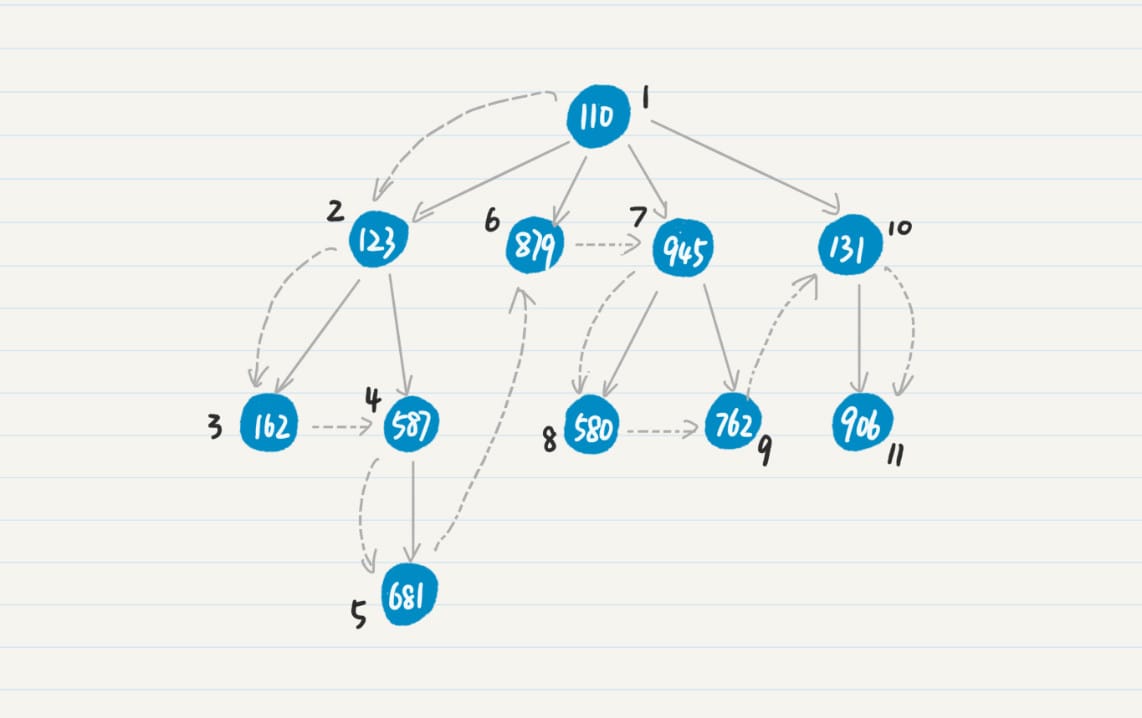 110 1
2 123 6 879 7 945 131 10
3 162 4 587 8 580 762 9 906 11
5 681